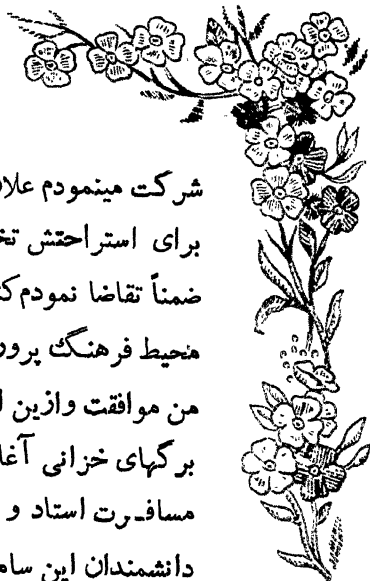 شرکت مینمودم
برای استراحتش
ضمناً تقاضا نمودم
محیط فرهنگ
من موافقت وازین
برگهای خزانی
مسافرت استاد و
دانشمندان این